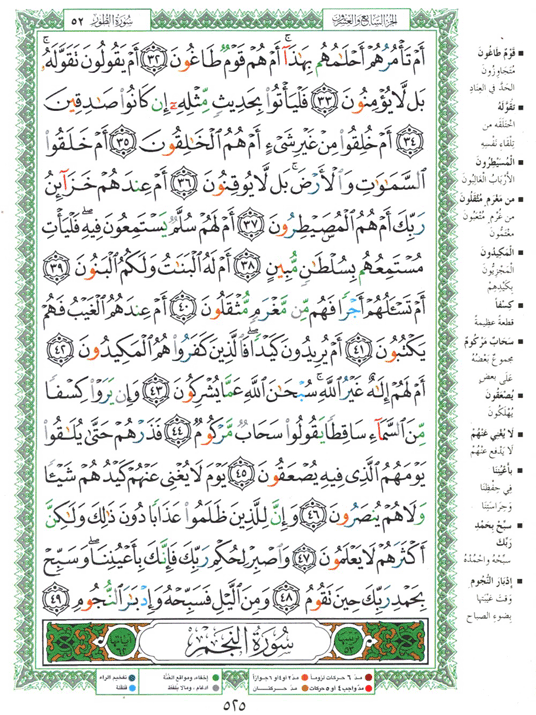 سُورَةُ الطُّورِ ٥٢
الجزء السابع والعشرون
أَمْ تَأْمُرُهُمْ أَحْلَٰمُهُم بِهَٰذَآ ۚ أَمْ هُمْ قَوْمٌ طَاغُونَ ٣٢ أَمْ يَقُولُونَ تَقَوَّلَهُۥ ۚ
بَل لَّا يُؤْمِنُونَ ٣٣ فَلْيَأْتُوا۟ بِحَدِيثٍ مِّثْلِهِۦٓ إِن كَانُوا۟ صَٰدِقِينَ
٣٤ أَمْ خُلِقُوا۟ مِنْ غَيْرِ شَىْءٍ أَمْ هُمُ ٱلْخَٰلِقُونَ ٣٥ أَمْ خَلَقُوا۟
ٱلسَّمَٰوَٰتِ وَٱلْأَرْضَ ۚ بَل لَّا يُوقِنُونَ ٣٦ أَمْ عِندَهُمْ خَزَآئِنُ
رَبِّكَ أَمْ هُمُ ٱلْمُصَۜيْطِرُونَ ٣٧ أَمْ لَهُمْ سُلَّمٌ يَسْتَمِعُونَ فِيهِ ۖ فَلْيَأْتِ
مُسْتَمِعُهُم بِسُلْطَٰنٍ مُّبِينٍ ٣٨ أَمْ لَهُ ٱلْبَنَٰتُ وَلَكُمُ ٱلْبَنُونَ ٣٩
أَمْ تَسْـَٔلُهُمْ أَجْرًا فَهُم مِّن مَّغْرَمٍ مُّثْقَلُونَ ٤٠ أَمْ عِندَهُمُ ٱلْغَيْبُ فَهُمْ
يَكْتُبُونَ ٤١ أَمْ يُرِيدُونَ كَيْدًا ۖ فَٱلَّذِينَ كَفَرُوا۟ هُمُ ٱلْمَكِيدُونَ ٤٢
أَمْ لَهُمْ إِلَٰهٌ غَيْرُ ٱللَّهِ ۚ سُبْحَٰنَ ٱللَّهِ عَمَّا يُشْرِكُونَ ٤٣ وَإِن يَرَوْا۟ كِسْفًا
مِّنَ ٱلسَّمَآءِ سَاقِطًا يَقُولُوا۟ سَحَابٌ مَّرْكُومٌ ٤٤ فَذَرْهُمْ حَتَّىٰ يُلَٰقُوا۟
يَوْمَهُمُ ٱلَّذِى فِيهِ يُصْعَقُونَ ٤٥ يَوْمَ لَا يُغْنِى عَنْهُمْ كَيْدُهُمْ شَيْـًٔا
وَلَا هُمْ يُنصَرُونَ ٤٦ وَإِنَّ لِلَّذِينَ ظَلَمُوا۟ عَذَابًا دُونَ ذَٰلِكَ وَلَٰكِنَّ
أَكْثَرَهُمْ لَا يَعْلَمُونَ ٤٧ وَٱصْبِرْ لِحُكْمِ رَبِّكَ فَإِنَّكَ بِأَعْيُنِنَا ۖ وَسَبِّحْ
بِحَمْدِ رَبِّكَ حِينَ تَقُومُ ٤٨ وَمِنَ ٱلَّيْلِ فَسَبِّحْهُ وَإِدْبَٰرَ ٱلنُّجُومِ ٤٩
ترتيبها ٥٣ سُورَةُ النَّجْمِ آياتها ٦٢
■ قَوْمٌ طَاغُونَ
مُتَجَاوِزُونَ
الحَدَّ في العِنادِ
■ تَقَوَّلَهُ
اخْتَلَقَه من
تِلْقاء نَفْسِهِ
■ الْمُسَيْطِرُونَ
الأَرْبَابُ الغَالِبُونَ
■ مِن مَغْرَمٍ مُثْقَلُون
من غُرْمٍ مُتْعَبُونَ
مُغْتَمُّونَ
■ الْمَكِيدُونَ
المَجْزِيُّونَ
بِكَيْدِهِمْ
■ كِسْفاً
قطعةً عظيمةً
■ سَحَابٌ مَرْكُومٌ
مجموعٌ بَعْضُهُ
على بعضٍ
■ يُصْعَقُونَ
يُهْلَكُونَ
■ لَا يُغْنِي عَنْهُمْ
لا يَدْفع عنْهُمْ
■ بِأَعْيُنِنَا
في حِفْظِنَا
وَحِرَاسَتِنَا
■ سَبِّحْ بِحَمْدِ
رَبِّكَ
سبِّحْهُ واحْمَدْهُ
■ إِدْبَارَ النُّجُومِ
وَقْتَ غَيْبَتِها
بِضَوءِ الصباح
مدّ ٦ حركات لزوماً مدّ ٢ أو ٤ أو ٦ جوازاً إخفاء، ومواقع الغُنَّة تفخيم الراء
مدّ واجب ٤ أو ٥ حركات مدّ حركتان إدغام، وما لا يُلفَظ قلقلة
٥٢٥